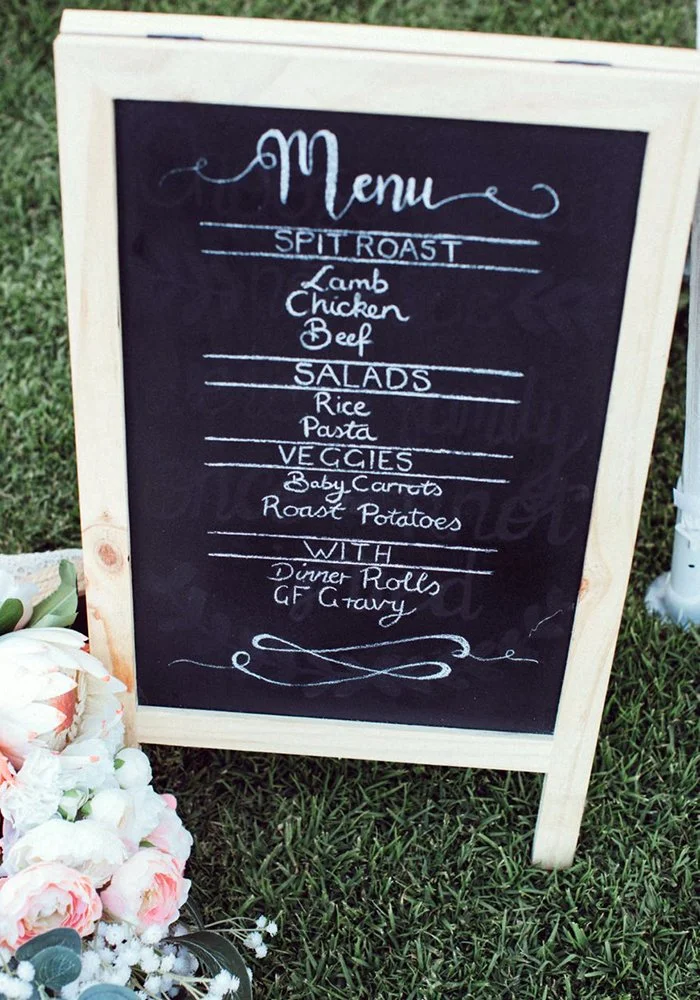 Menu
SPIT ROAST
Lamb
Chicken
Beef
SALADS
Rice
Pasta
VEGGIES
Baby Carrots
Roast Potatoes
WITH
Dinner Rolls
GF Gravy